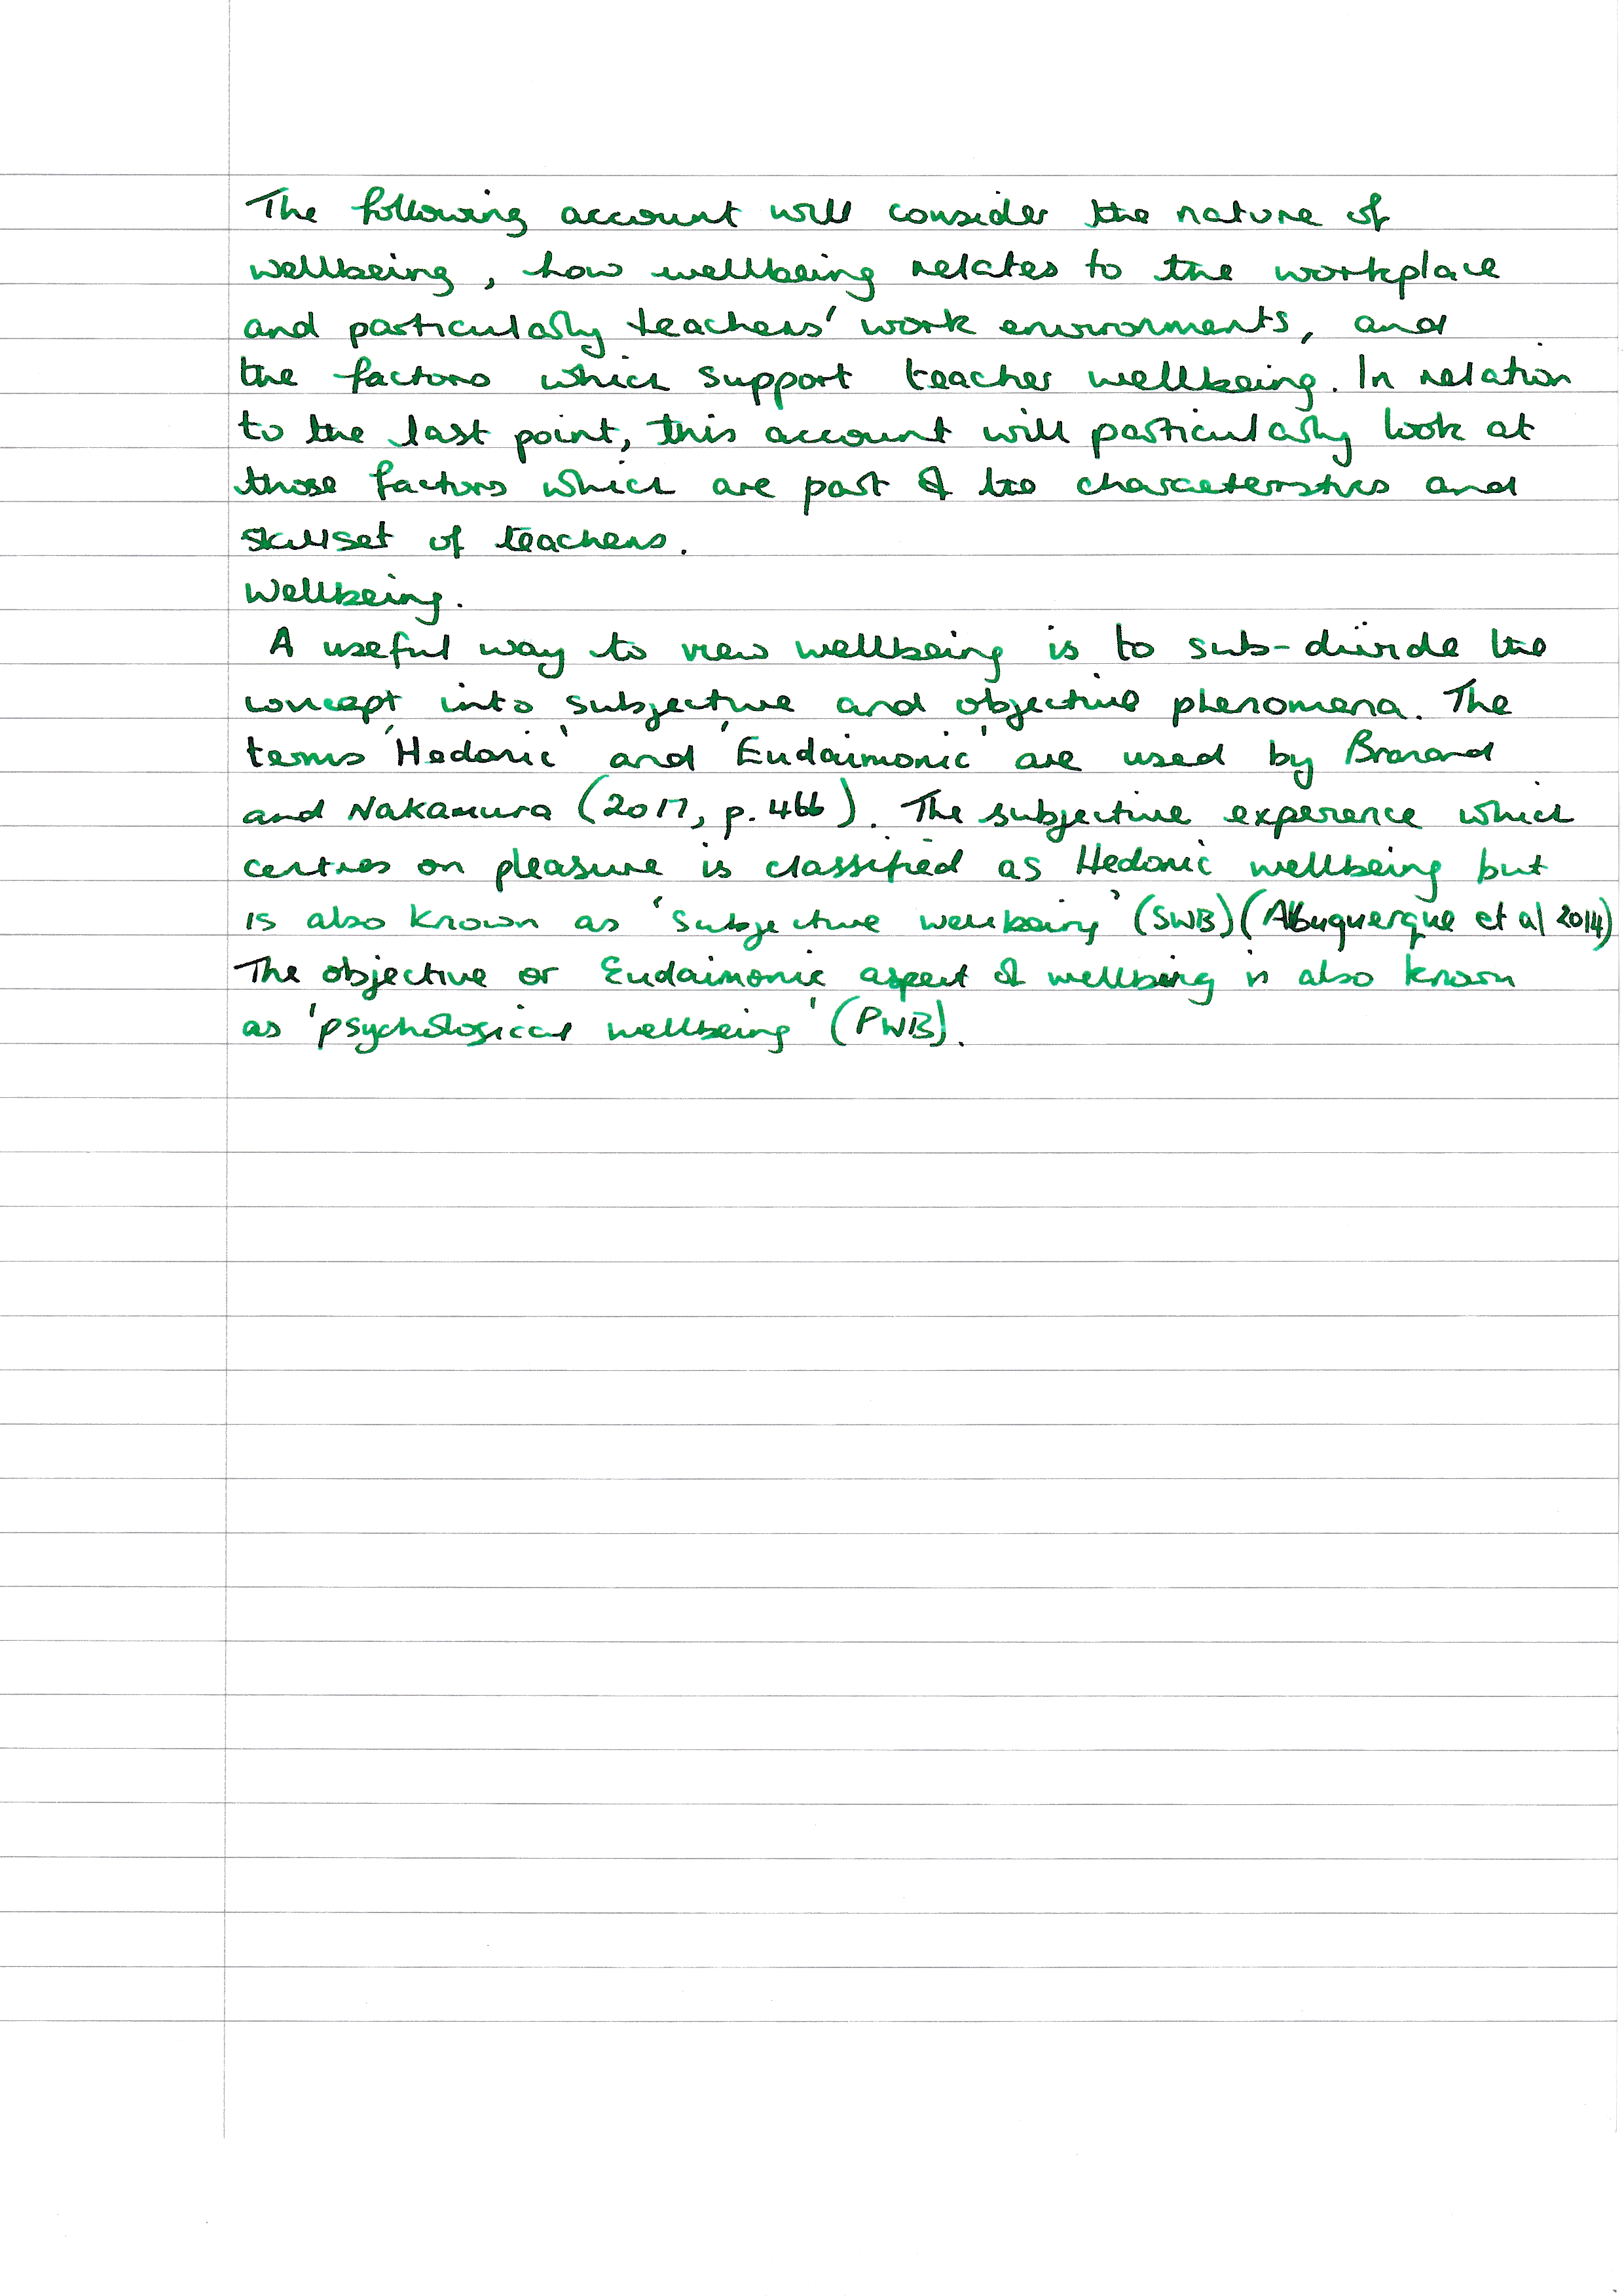 The following account will consider the nature of
wellbeing, how wellbeing relates to the workplace
and particularly teachers' work environments, and
the factors which support teacher wellbeing. In relation
to the last point, this account will particularly look at
those factors which are part of the characteristics and
skillset of teachers.
Wellbeing.
A useful way to view wellbeing is to sub-divide the
concept into subjective and objective phenomena. The
terms 'Hedonic' and 'Eudaimonic' are used by Brorand
and Nakamura (2017, p. 466). The subjective experience which
centres on pleasure is classified as Hedonic wellbeing but
is also known as 'subjective wellbeing' (SWB) (Albuquerque et al 2014)
The objective or Eudaimonic aspect of wellbeing is also known
as 'psychological wellbeing' (PWB).